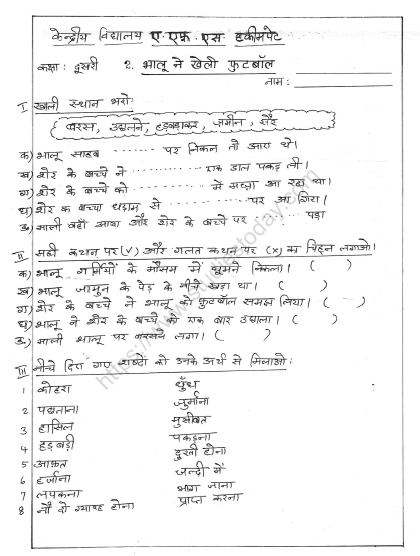 केन्द्रीय विद्यालय ए. एफ. एस. हकीमपेट
कक्षा: दूसरी 2. भालू ने खेली फुटबॉल
नाम:
I खाली स्थान भरो:
बरस, उछालने, हड़बड़ाकर, ज़मीन, सैर
क) भालू साहब .......... पर निकल तो आए थे।
ख) शेर के बच्चे ने .......... एक डाल पकड़ ली।
ग) शेर के बच्चे को .......... में मज़ा आ रहा था।
घ) शेर का बच्चा धड़ाम से .......... पर आ गिरा।
ङ) माली वहाँ आया और शेर के बच्चे पर ....... पड़ा
II सही कथन पर (√) और गलत कथन पर (×) का चिह्न लगाओ।
क) भालू गर्मियों के मौसम में घूमने निकला। ( )
ख) भालू जामुन के पेड़ के नीचे खड़ा था। ( )
ग) शेर के बच्चे ने भालू को फुटबॉल समझ लिया। ( )
घ) भालू ने शेर के बच्चे को एक बार उछाला। ( )
ङ) माली भालू पर बरसने लगा। ( )
III नीचे दिए गए शब्दों को उनके अर्थ से मिलाओ:
1 कोहरा धुँध
2 पछताना जुर्माना
3 हासिल मुसीबत
4 हड़बड़ी पकड़ना
5 आफ़त दुखी होना
6 हर्जाना जल्दी में
7 लपकना भाग जाना
8 नौ दो ग्यारह होना प्राप्त करना